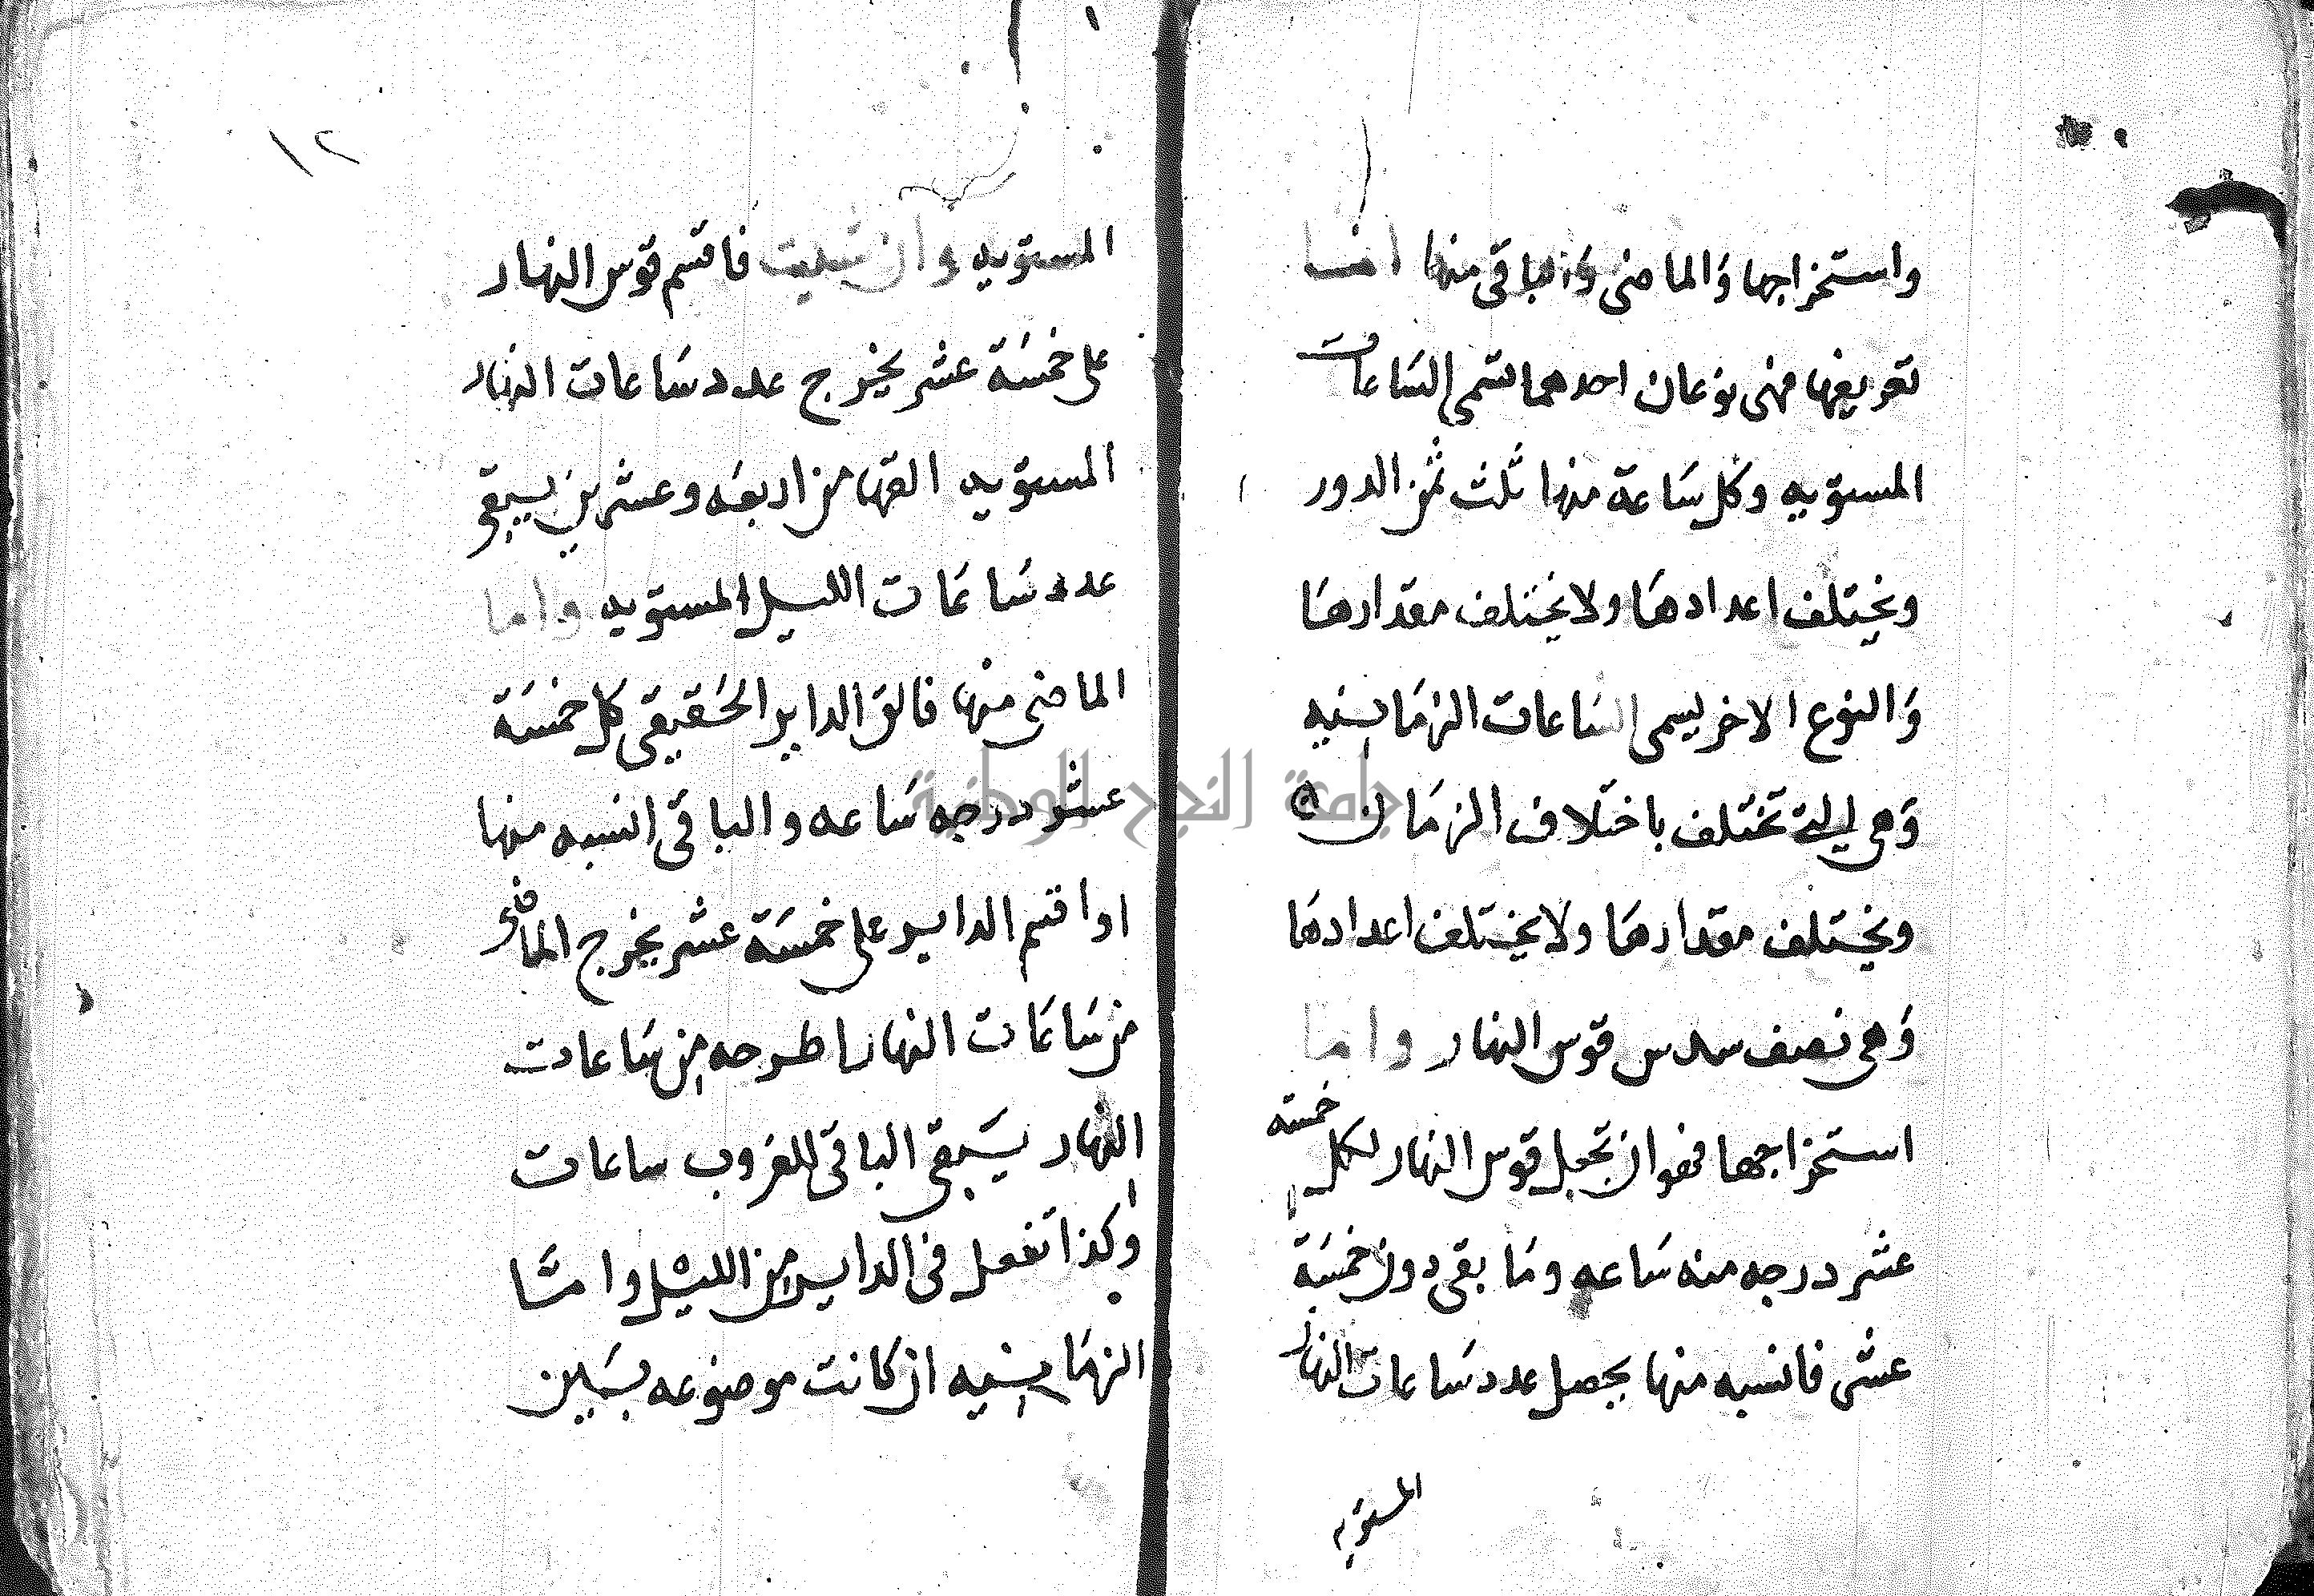 واستخراجها والماضى والباقى منها اما
تعريفها فهى نوعان احدهما تسمى الساعات
المستويه وكل ساعة منها ثلث ثمن الدور
ويختلف اعدادها ولا يختلف مقدارها
والنوع الاخر يسمى الساعات الزمانيه
وهى التى تختلف باختلاف الزمان
ويختلف مقدارها ولا يختلف اعدادها
وهى نصف سدس قوس النهار واما
استخراجها فهو ان تجعل قوس النهار لكل خمسته
عشر درجه منه ساعه وما بقى دون خمسة
عشر فانسبه منها يحصل عدد ساعات النهار
المستويه
١٢
المستويه وان شيت فاقسم قوس النهار
على خمسة عشر يخرج عدد ساعات النهار
المستويه القها من اربعه وعشرين يبقى
عدد ساعات الليل المستويه واما
الماضى منها فالق الداير الحقيقى كل خمسة
عشر درجه ساعه والباقى انسبه منها
او اقسم الداير على خمسة عشر يخرج الماضى
من ساعات النهار اطرحه من ساعات
النهار يبقى الباقى للغروب ساعات
وكذا تفعل فى الداير من الليل واما
الزمانيه ان كانت موضوعه بين
جامعة النجاح الوطنية